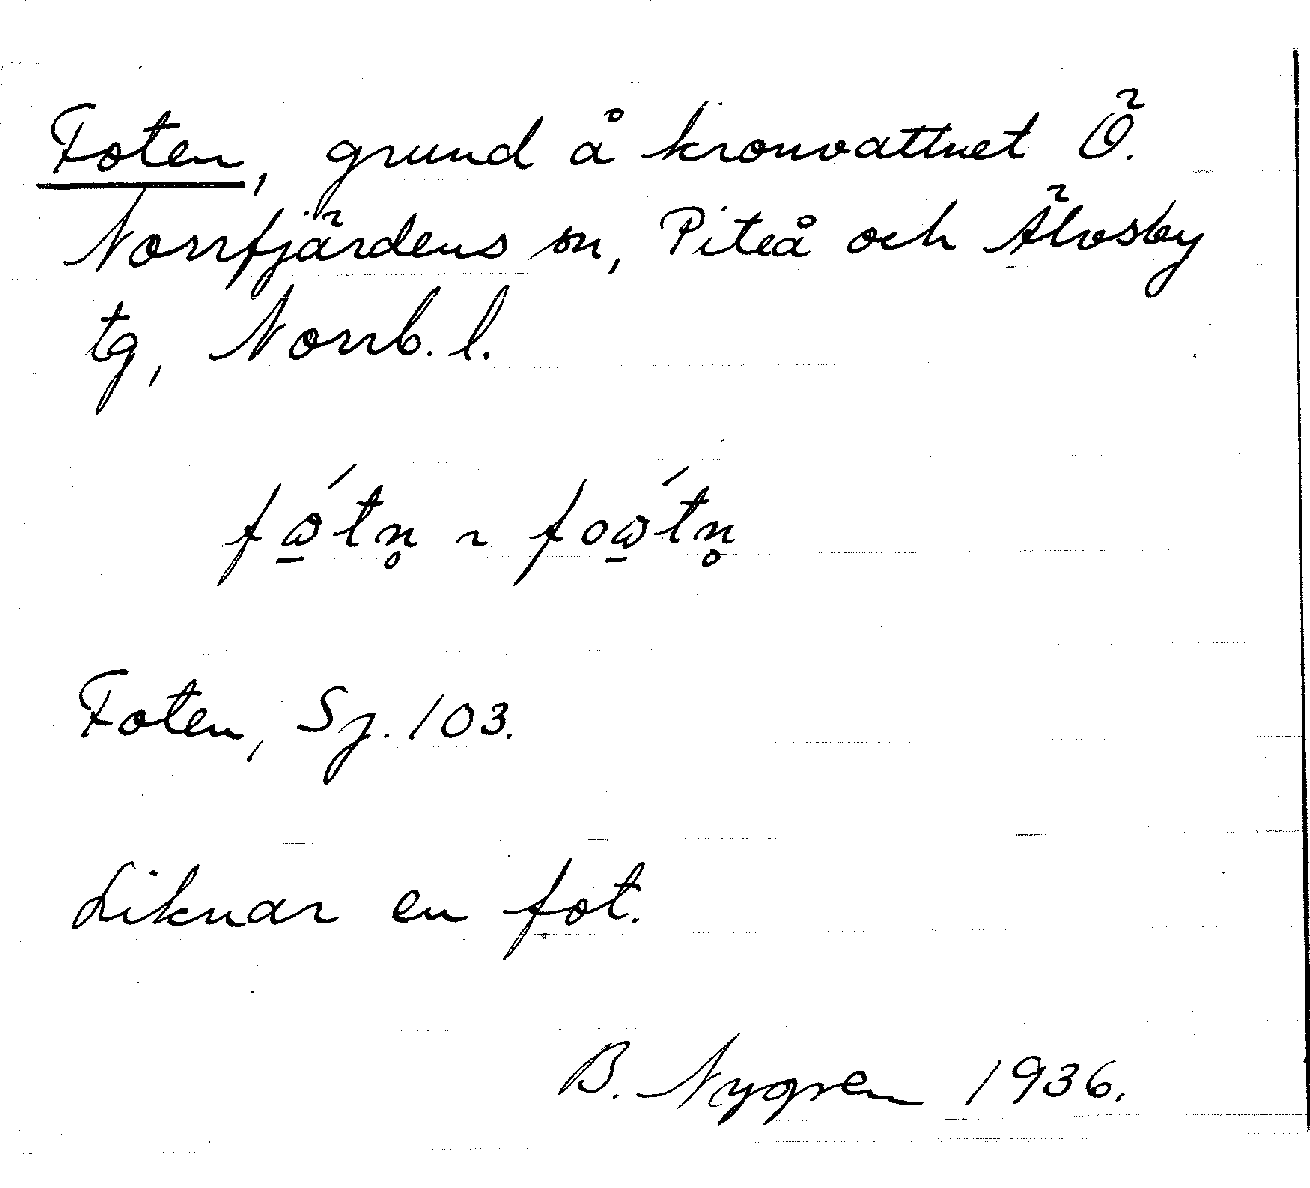 Foten, grund å kronvattnet Ö.
Norrfjärdens sn, Piteå och Älvsby
tg, Norrb. l.
fώ̱tn̥ ~ foώ̱tn̥
Foten, Sj. 103.
Liknar en fot.
B. Nygren 1936.